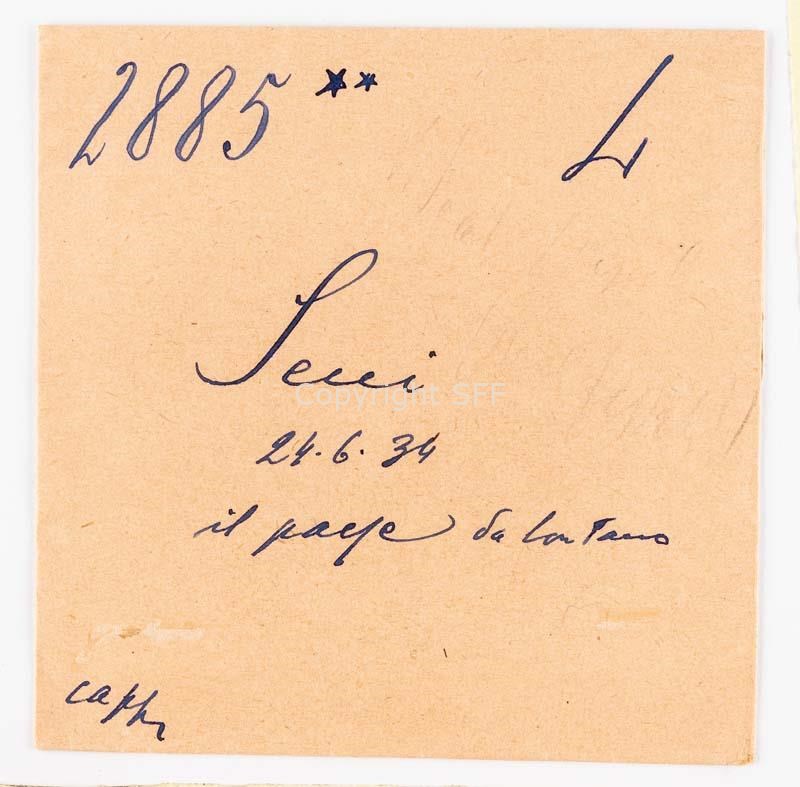 2885 ** 4
Seui
24.6.34
il paese da lontano
Copyright SFF